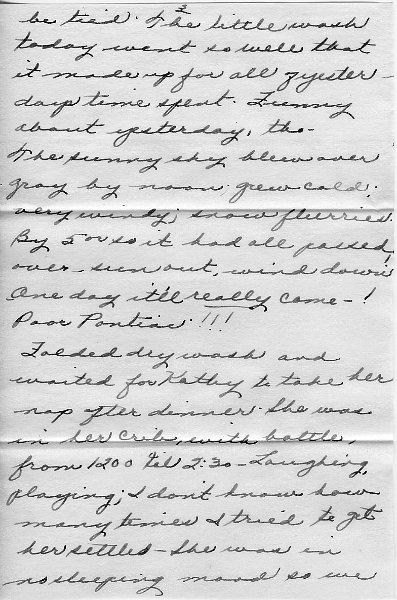 3
be tied. The little wash
today went so well that
it made up for all yester-
days time spent. Funny
about yesterday, tho-
The sunny sky blew over
gray by noon; grew cold;
very windy; snow flurries.
By 5 or so it had all passed
over - sun out, wind down!
One day it'll really come - !
Poor Pontiac. !!!
Folded dry wash and
waited for Kathy to take her
nap after dinner. She was
in her crib, with bottle,
from 1200 'til 2:30 - Laughing,
playing; I don't know how
many times I tried to get
her settled - She was in
no sleeping mood so we